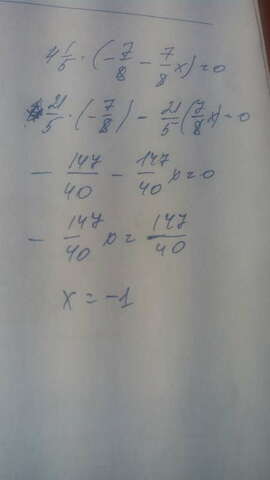 4 1/5 · (− 7/8 − 7/8 x) = 0
21/5 · (− 7/8) − 21/5 (7/8 x) = 0
− 147/40 − 147/40 x = 0
− 147/40 x = 147/40
x = −1